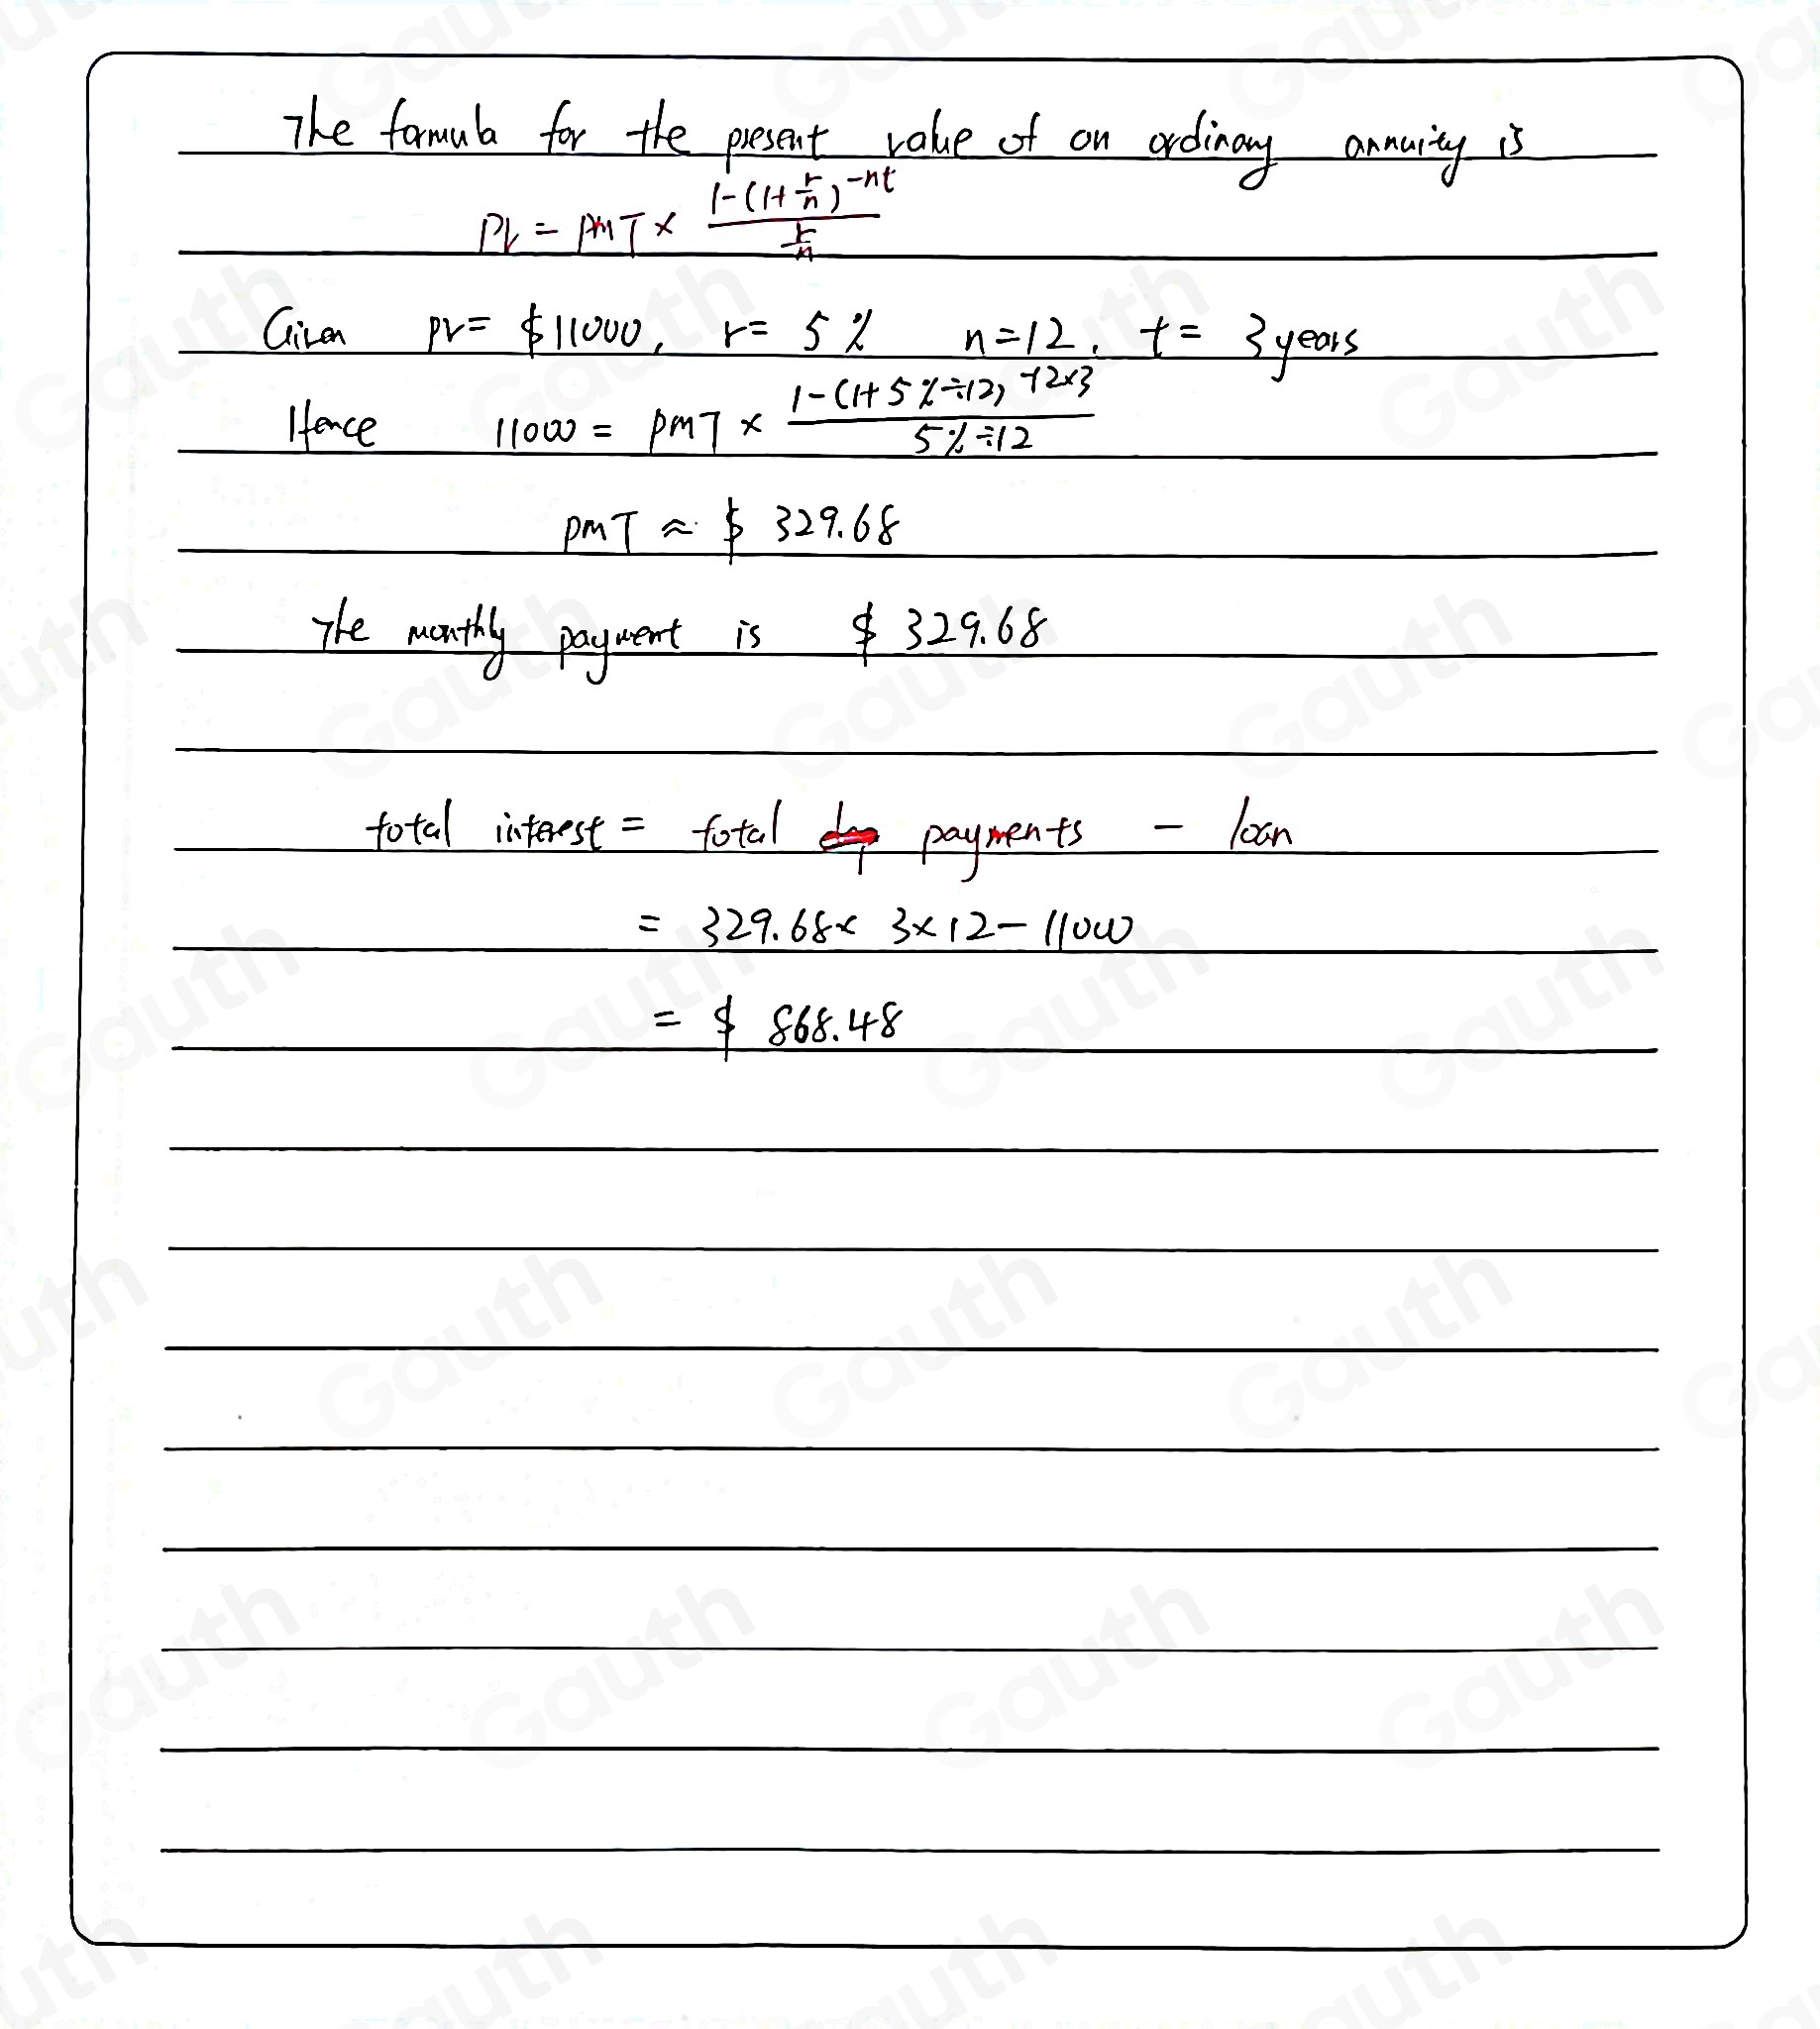 The formula for the present value of an ordinary annuity is
PV = PMT × \frac{1-(1+\frac{r}{n})^{-nt}}{\frac{r}{n}}
Given PV= $11000, r= 5% n=12, t= 3 years
Hence 11000 = PMT × \frac{1-(1+5%÷12)^{-12×3}}{5%÷12}
PMT ≈ $ 329.68
The monthly payment is $ 329.68
total interest = total payments - loan
= 329.68× 3×12-11000
= $ 868.48
Gauth